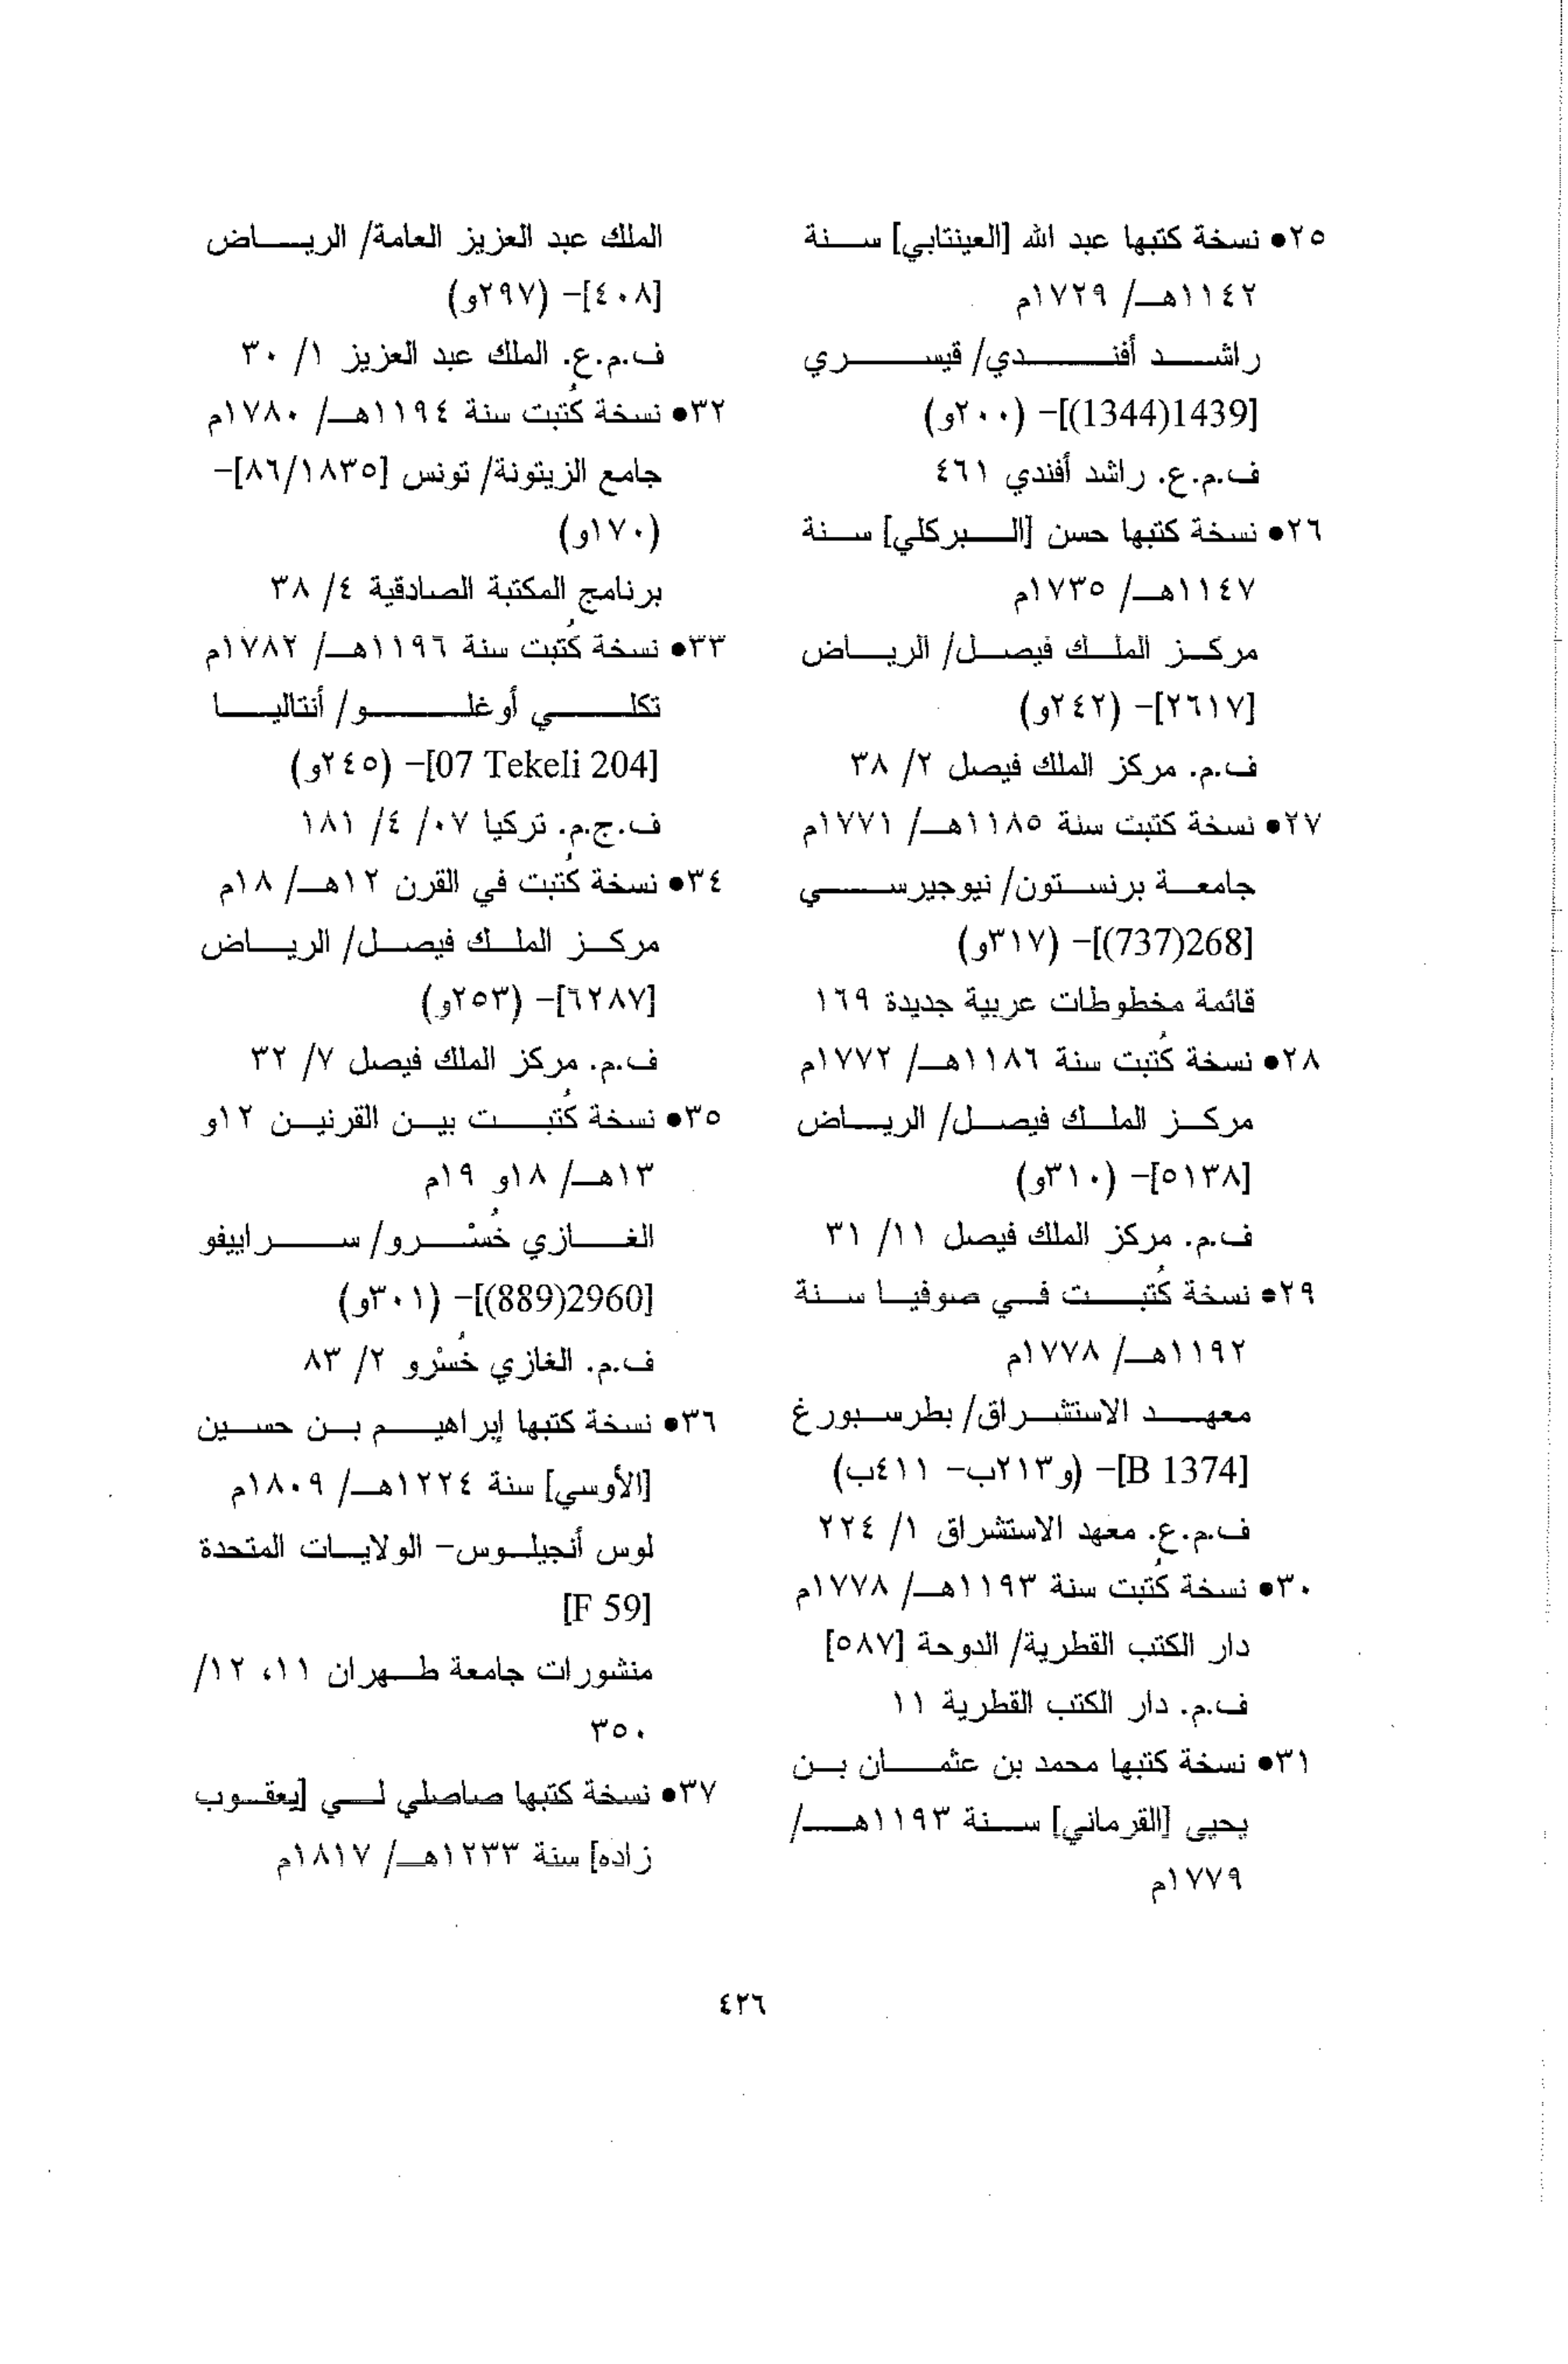 ٢٥● نسخة كتبها عبد الله [العينتابي] سنة
١١٤٢هـ/ ١٧٢٩م
راشد أفندي/ قيسري
[1439(1344)]- (٢٠٠و)
ف.م.ع. راشد أفندي ٤٦١
٢٦● نسخة كتبها حسن [البركلي] سنة
١١٤٧هـ/ ١٧٣٥م
مركز الملك فيصل/ الرياض
[٢٦١٧]- (٢٤٢و)
ف.م. مركز الملك فيصل ٢/ ٣٨
٢٧● نسخة كتبت سنة ١١٨٥هـ/ ١٧٧١م
جامعة برنستون/ نيوجيرسي
[268(737)]- (٣١٧و)
قائمة مخطوطات عربية جديدة ١٦٩
٢٨● نسخة كُتبت سنة ١١٨٦هـ/ ١٧٧٢م
مركز الملك فيصل/ الرياض
[٥١٣٨]- (٣١٠و)
ف.م. مركز الملك فيصل ١١/ ٣١
٢٩● نسخة كُتبت في صوفيا سنة
١١٩٢هـ/ ١٧٧٨م
معهد الاستشراق/ بطرسبورغ
[B 1374]- (و٢١٣ب- ٤١١ب)
ف.م.ع. معهد الاستشراق ١/ ٢٢٤
٣٠● نسخة كُتبت سنة ١١٩٣هـ/ ١٧٧٨م
دار الكتب القطرية/ الدوحة [٥٨٧]
ف.م. دار الكتب القطرية ١١
٣١● نسخة كتبها محمد بن عثمان بن
يحيى [القرماني] سنة ١١٩٣هـ/
١٧٧٩م
الملك عبد العزيز العامة/ الرياض
[٤٠٨]- (٢٩٧و)
ف.م.ع. الملك عبد العزيز ١/ ٣٠
٣٢● نسخة كُتبت سنة ١١٩٤هـ/ ١٧٨٠م
جامع الزيتونة/ تونس [٨٦/١٨٣٥]-
(١٧٠و)
برنامج المكتبة الصادقية ٤/ ٣٨
٣٣● نسخة كُتبت سنة ١١٩٦هـ/ ١٧٨٢م
تكلي أوغلو/ أنتاليا
[07 Tekeli 204]- (٢٤٥و)
ف.ج.م. تركيا ٠٧/ ٤/ ١٨١
٣٤● نسخة كُتبت في القرن ١٢هـ/ ١٨م
مركز الملك فيصل/ الرياض
[٦٢٨٧]- (٢٥٣و)
ف.م. مركز الملك فيصل ٧/ ٣٢
٣٥● نسخة كُتبت بين القرنين ١٢و
١٣هـ/ ١٨و ١٩م
الغازي خُسْرو/ سراييفو
[2960(889)]- (٣٠١و)
ف.م. الغازي خُسْرو ٢/ ٨٣
٣٦● نسخة كتبها إبراهيم بن حسين
[الأوسي] سنة ١٢٢٤هـ/ ١٨٠٩م
لوس أنجيلوس- الولايات المتحدة
[F 59]
منشورات جامعة طهران ١١، ١٢/
٣٥٠
٣٧● نسخة كتبها صاصلي لي [يعقوب
زاده] سنة ١٢٣٣هـ/ ١٨١٧م
٤٢٦